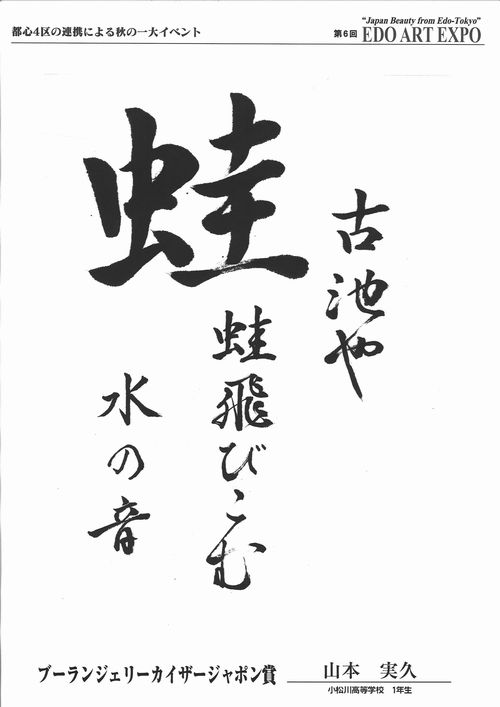 都心4区の連携による秋の一大イベント
"Japan Beauty from Edo-Tokyo"
第6回 EDO ART EXPO
蛙
古池や
蛙飛びこむ
水の音
ブーランジェリーカイザージャポン賞
山本 実久
小松川高等学校 1年生